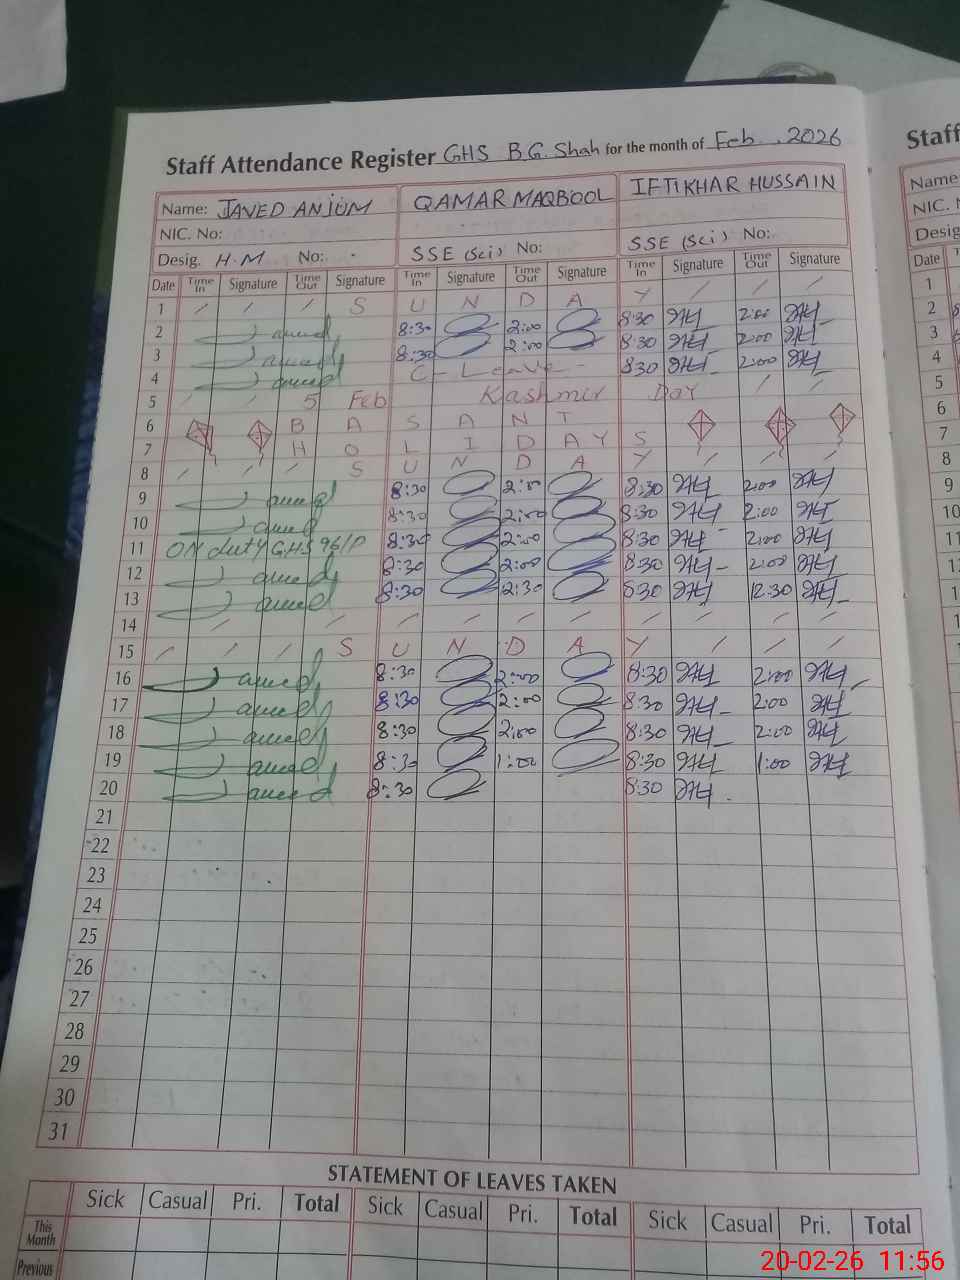 Staff Attendance Register GHS B.G. Shah for the month of Feb., 2026
Staff
Name: JAVED ANJUM QAMAR MAQBOOL IFTIKHAR HUSSAIN
Name
NIC. No:
NIC.
Desig. H.M No: SSE (Sci) No: SSE (Sci) No:
Desig
Date Time In Signature Time Out Signature Time In Signature Time Out Signature Time In Signature Time Out Signature
Date
1 / / / S U N D A Y / / /
1
2 8:30 2:00 8:30 2:00
2
3 8:30 2:00 8:30 2:00
3
4 C-Leave- 830 2:00
4
5 / / 5 Feb Kashmir Day / /
5
6 B A S A N T
6
7 H O L I D A Y S
7
8 / / / S U N D A Y / / /
8
9 8:30 2:00 8:30 2:00
9
10 8:30 2:00 8:30 2:00
10
11 ON duty GHS 96/P 8:30 2:00 8:30 2:00
11
12 8:30 2:00 8:30 2:00
13 8:30 12:30 8:30 12:30
13
14 / / / / / / / / / /
14
15 / / / S U N D A Y / / /
15
16 8:30 2:00 8:30 2:00
16
17 8:30 2:00 8:30 2:00
17
18 8:30 2:00 8:30 2:00
18
19 8:30 1:00 8:30 1:00
19
20 8:30 8:30
20
21
21
22
22
23
23
24
24
25
25
26
26
27
27
28
28
29
29
30
30
31
31
STATEMENT OF LEAVES TAKEN
Sick Casual Pri. Total Sick Casual Pri. Total Sick Casual Pri. Total
This Month
Previous
20-02-26 11:56